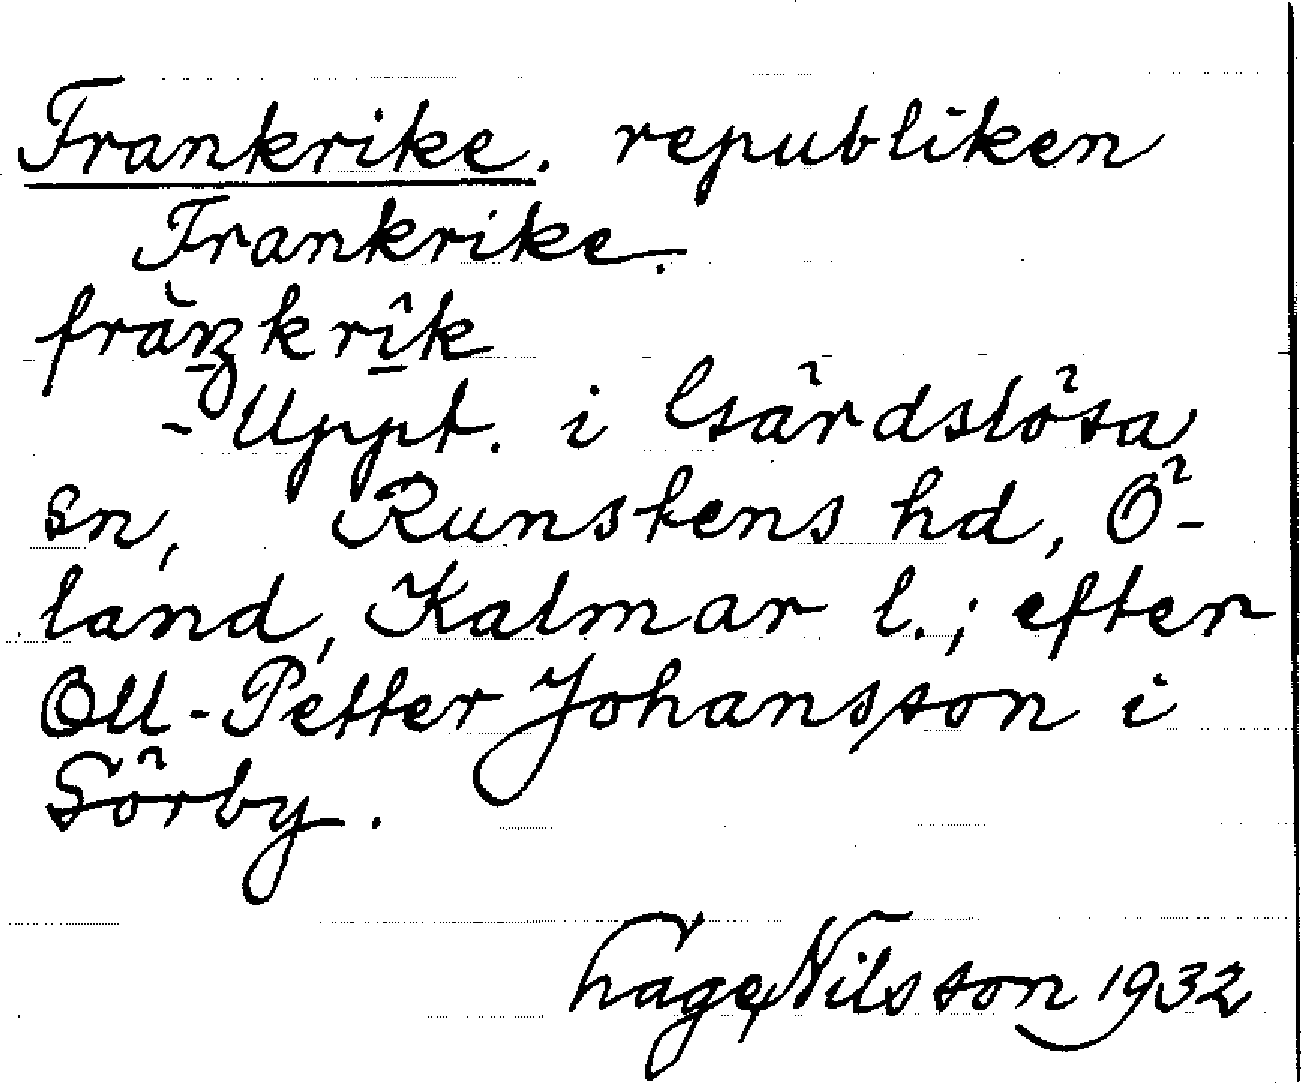 Frankrike. republiken
Frankrike.
fràŋkrîk
- Uppt. i Gärdslösa
sn, Runstens hd, Ö-
land, Kalmar l.; efter
Oll-Petter Johansson i
Sörby.
Åge Nilsson 1932